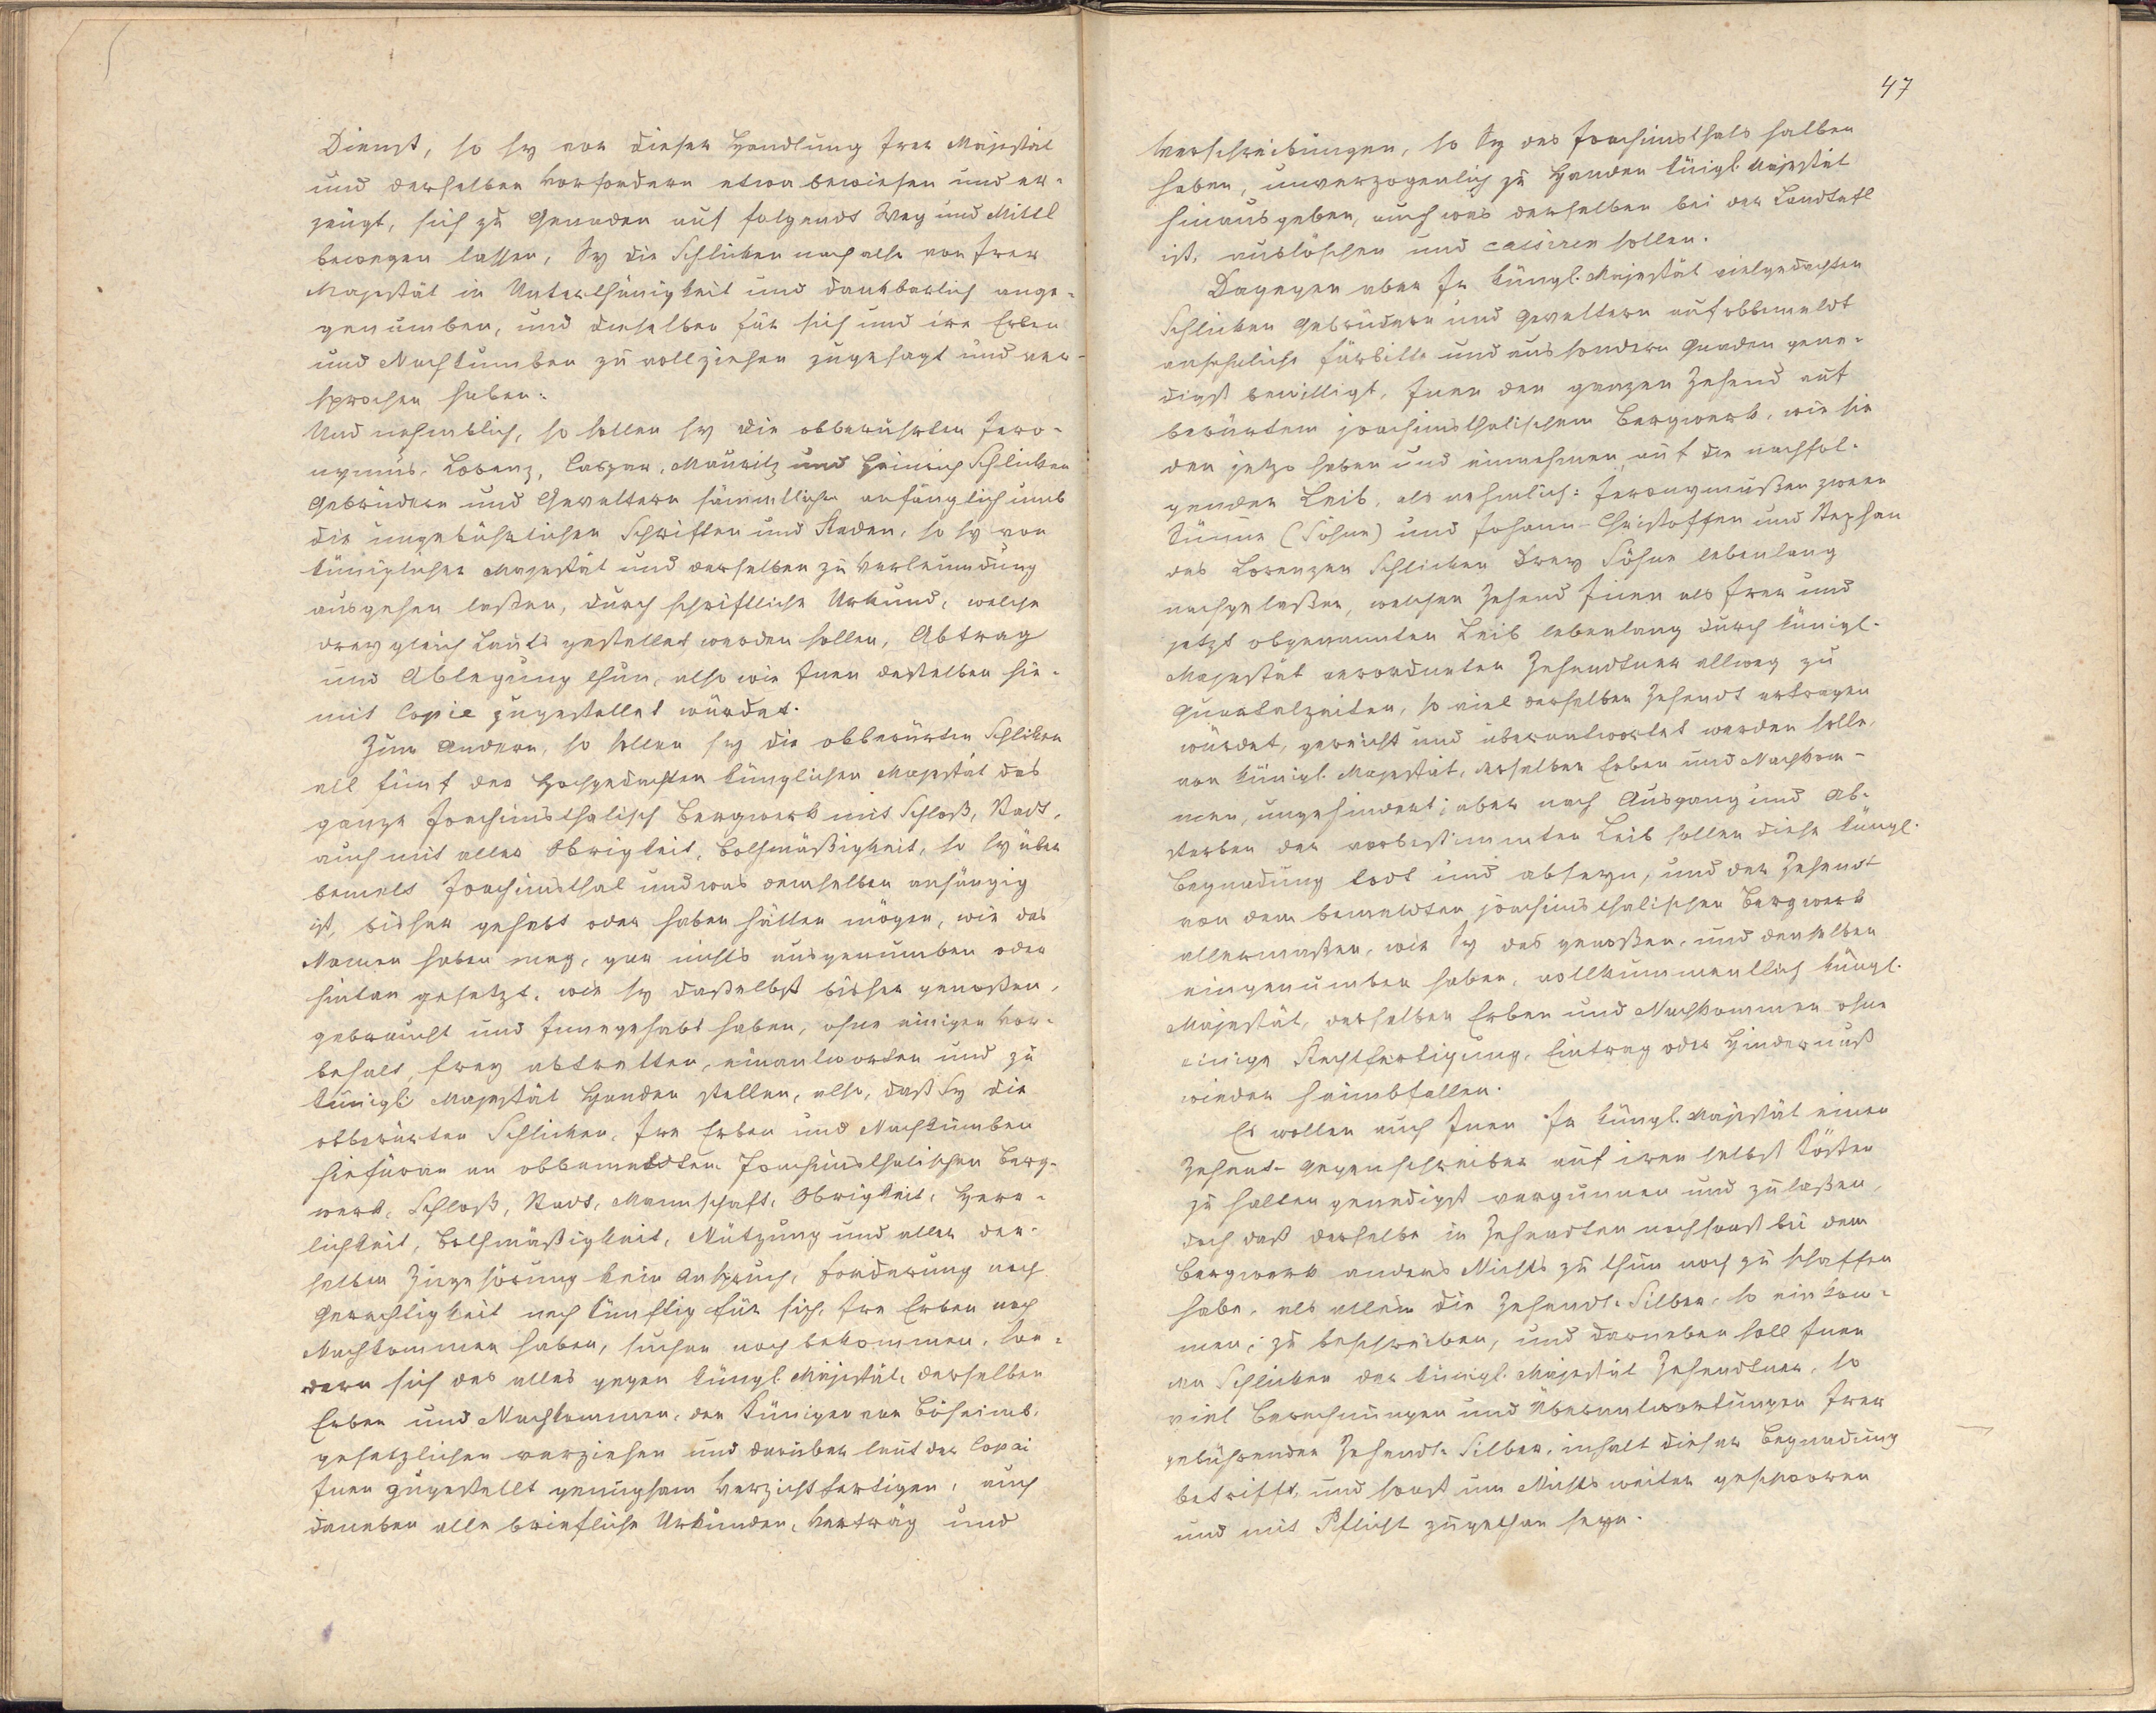 Dienst, so sy vor dieser Handlung Irer Majestät
und derselben Vorfordern etwa bewiesen und er-
zeugt, sich zu Genaden auf folgends Weg und Mittl
bewegen lassen, Sy die Schlicken auch also von Irer
Majestät in Unterthänigkeit und dankbarlich ange-
genumben, und dieselben für sich und ire Erben
und Nachkumben zu vollziehen zugesagt und ver-
sprochen haben:
Und nehmblich, so sollen sy die obberuhrten Jero-
nymus, Lorenz, Caspar, Mauritz und Heinrich Schlicken
Gebrüdern und Gevettern sämmtlichen anfänglich umb
die ungebührlichen Schriften und Reden, so sy von
küniglicher Majestät und derselben zu Verleumdung
ausgehen laßen, durch schriftliche Urkund, welche
drey gleich Lauts gestellet werden sollen, Abtrag
und Ablegung thun, also wie Inen desselben hie-
mit Copie zugestellet würdet.
Zum Andern, so sollen sy die obberürten Schlicken
all fünf der Hochgedachten künglichen Majestät das
ganze Joachimsthalisch Bergwerk mit Schloß, Stadt,
auch mit aller Obrigkeit, Bothmäßigkeit, so sy über
bemelt Joachimsthal und was demselben anhängig
ist, bisher gehabt oder haben hätten mögen, wie das
Namen haben mag, gar nichts ausgenumben oder
hintan gesetzt, wie sy daßelbst bisher genoßen,
gebraucht und Innegehabt haben, ohne einigen Vor-
behalt, frey abtretten, einantworten und zu
künigl: Majestät Handen stellen, also, daß Sy die
obberürten Schlicken, Ire Erben und Nachkumben
hiefüran an obbemeldten Joachimsthalischen Berg-
werk, Schloß, Stadt, Mannschaft, Obrigkeit, Herr-
lichkeit, Bothmäßigkeit, Nützung und aller der-
selben Zugehörung kein Anspruch, Forderung noch
Gerechtigkeit noch künftig für sich, Ire Erben noch
Nachkommen haben, suchen noch bekommen, son-
dern sich des alles gegen küngl. Majestät, derselben
Erben und Nachkommen, den Künigen von Böheimb,
gesetzlichen verziehen und darüber laut der Copei
Inen zugestellt genugsam Verzicht fertigen, auch
daneben alle briefliche Urkunden, Verträg und
47
Verschreibungen, so Sy des Joachimsthals halben
haben, unverzogenlich zu Handen künigl. Majestät
hinausgeben, auch was derselben bei der Landtafl
ist, auslöschen und cassiren sollen.
Dagegen aber Ir küngl. Majestät vielgedachten
Schlicken Gebrüdern und Gevettern auf obbemeldt
ansehnliche Fürbitte und aus sondern Gnaden gene-
digst bewilligt, Inen den ganzen Zehend auf
berürtem joachimsthalischem Bergwerk, wie sie
den jetzo haben und einnehmen, auf die nachfol-
genden Leib, als nehmlich: Jeronymußen zween
Sünne (Söhne) und Johann-Christoffen und Stephan
das Lorenzen Schlicken drey Söhne lebenlang
nachgelaßen, welchen Zehend Inen als Iren und
jetzt obgenannten Leib lebenlang durch künigl.
Majestät verordneten Zehendtner allweg zu
Quartalzeiten, so viel derselben Zehendt ertragen
würdet, gereicht und überantwortet werden solle,
von künigl. Majestät, derselben Erben und Nachkom-
men, ungehindert; aber nach Ausgang und Ab-
sterben der vorbestimmten Leib sollen diese küngl.
Begnadung todt und abseyn, und der Zehendt
von dem bemeldten joachimsthalischen Bergwerk
allermaßen, wie Sy das genoßen, und denselben
eingenumben haben, vollkummentlich küngl.
Majestät, derselben Erben und Nachkommen ohne
einige Rechtfertigung, Eintrag oder Hindernuß
wieder heimbfallen.
Es wollen auch Inen Ir küngl. Majestät einen
Zehent-Gegenschreiber auf iren selbst Kösten
zu halten genedigst vergunnen und zulaßen,
doch daß derselbe in Zehendten noch sonst bei dem
Bergwerk anders Nichts zu thun noch zu schaffen
habe, als allein die Zehendt-Silber, so einkom-
men, zu beschreiben, und darneben soll Inen
den Schlicken der künigl. Majestät Zehendtner, so
viel Berechnungen und Überantwortungen Irer
gebührenden Zehendt-Silber, inhalt dieser Begnadung
betrifft, und sonst um Nichts weiter geschworen
und mit Pflicht zugethan seyn.